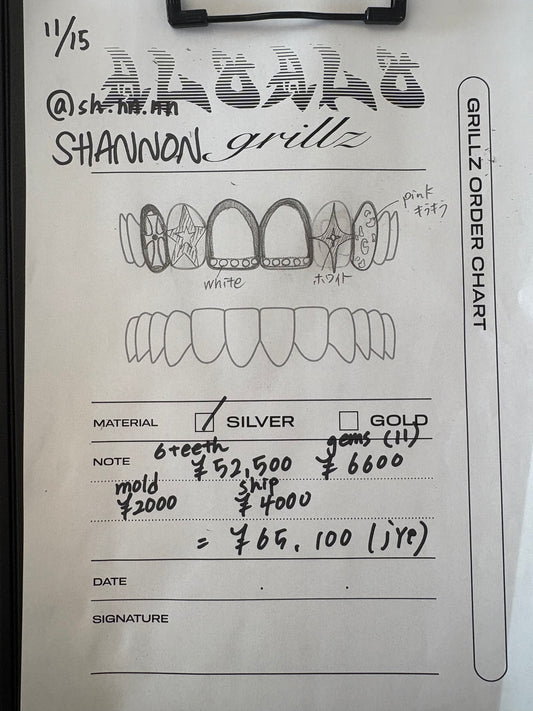 11/15
ALOALO
@sh.nn.nn
SHANNON grillz
GRILLZ ORDER CHART
pink
キラキラ
white
ホワイト
MATERIAL SILVER GOLD
6 teeth gems (11)
NOTE ¥52,500 ¥6600
mold ship
¥2000 ¥4000
= ¥65,100 (jpe)
DATE
SIGNATURE